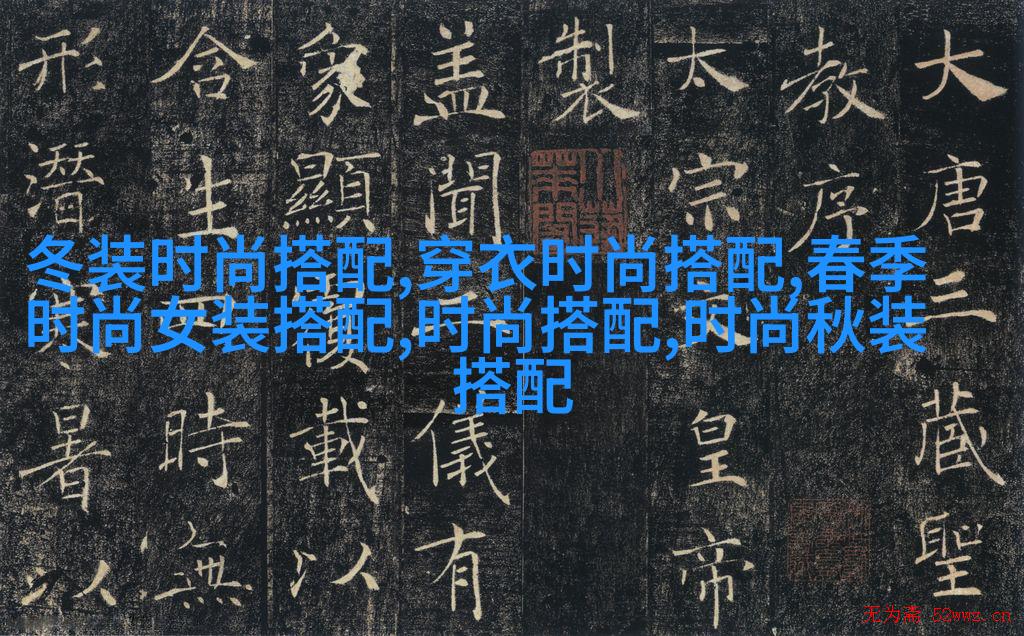 大唐三藏聖
教序
太宗文皇帝
製
盖聞二儀有
象顯覆載以
含生四時無
形潛寒暑以
冬装时尚搭配,穿衣时尚搭配,春季
时尚女装搭配,时尚搭配,时尚秋装
搭配
无为斋 52wwz.cn